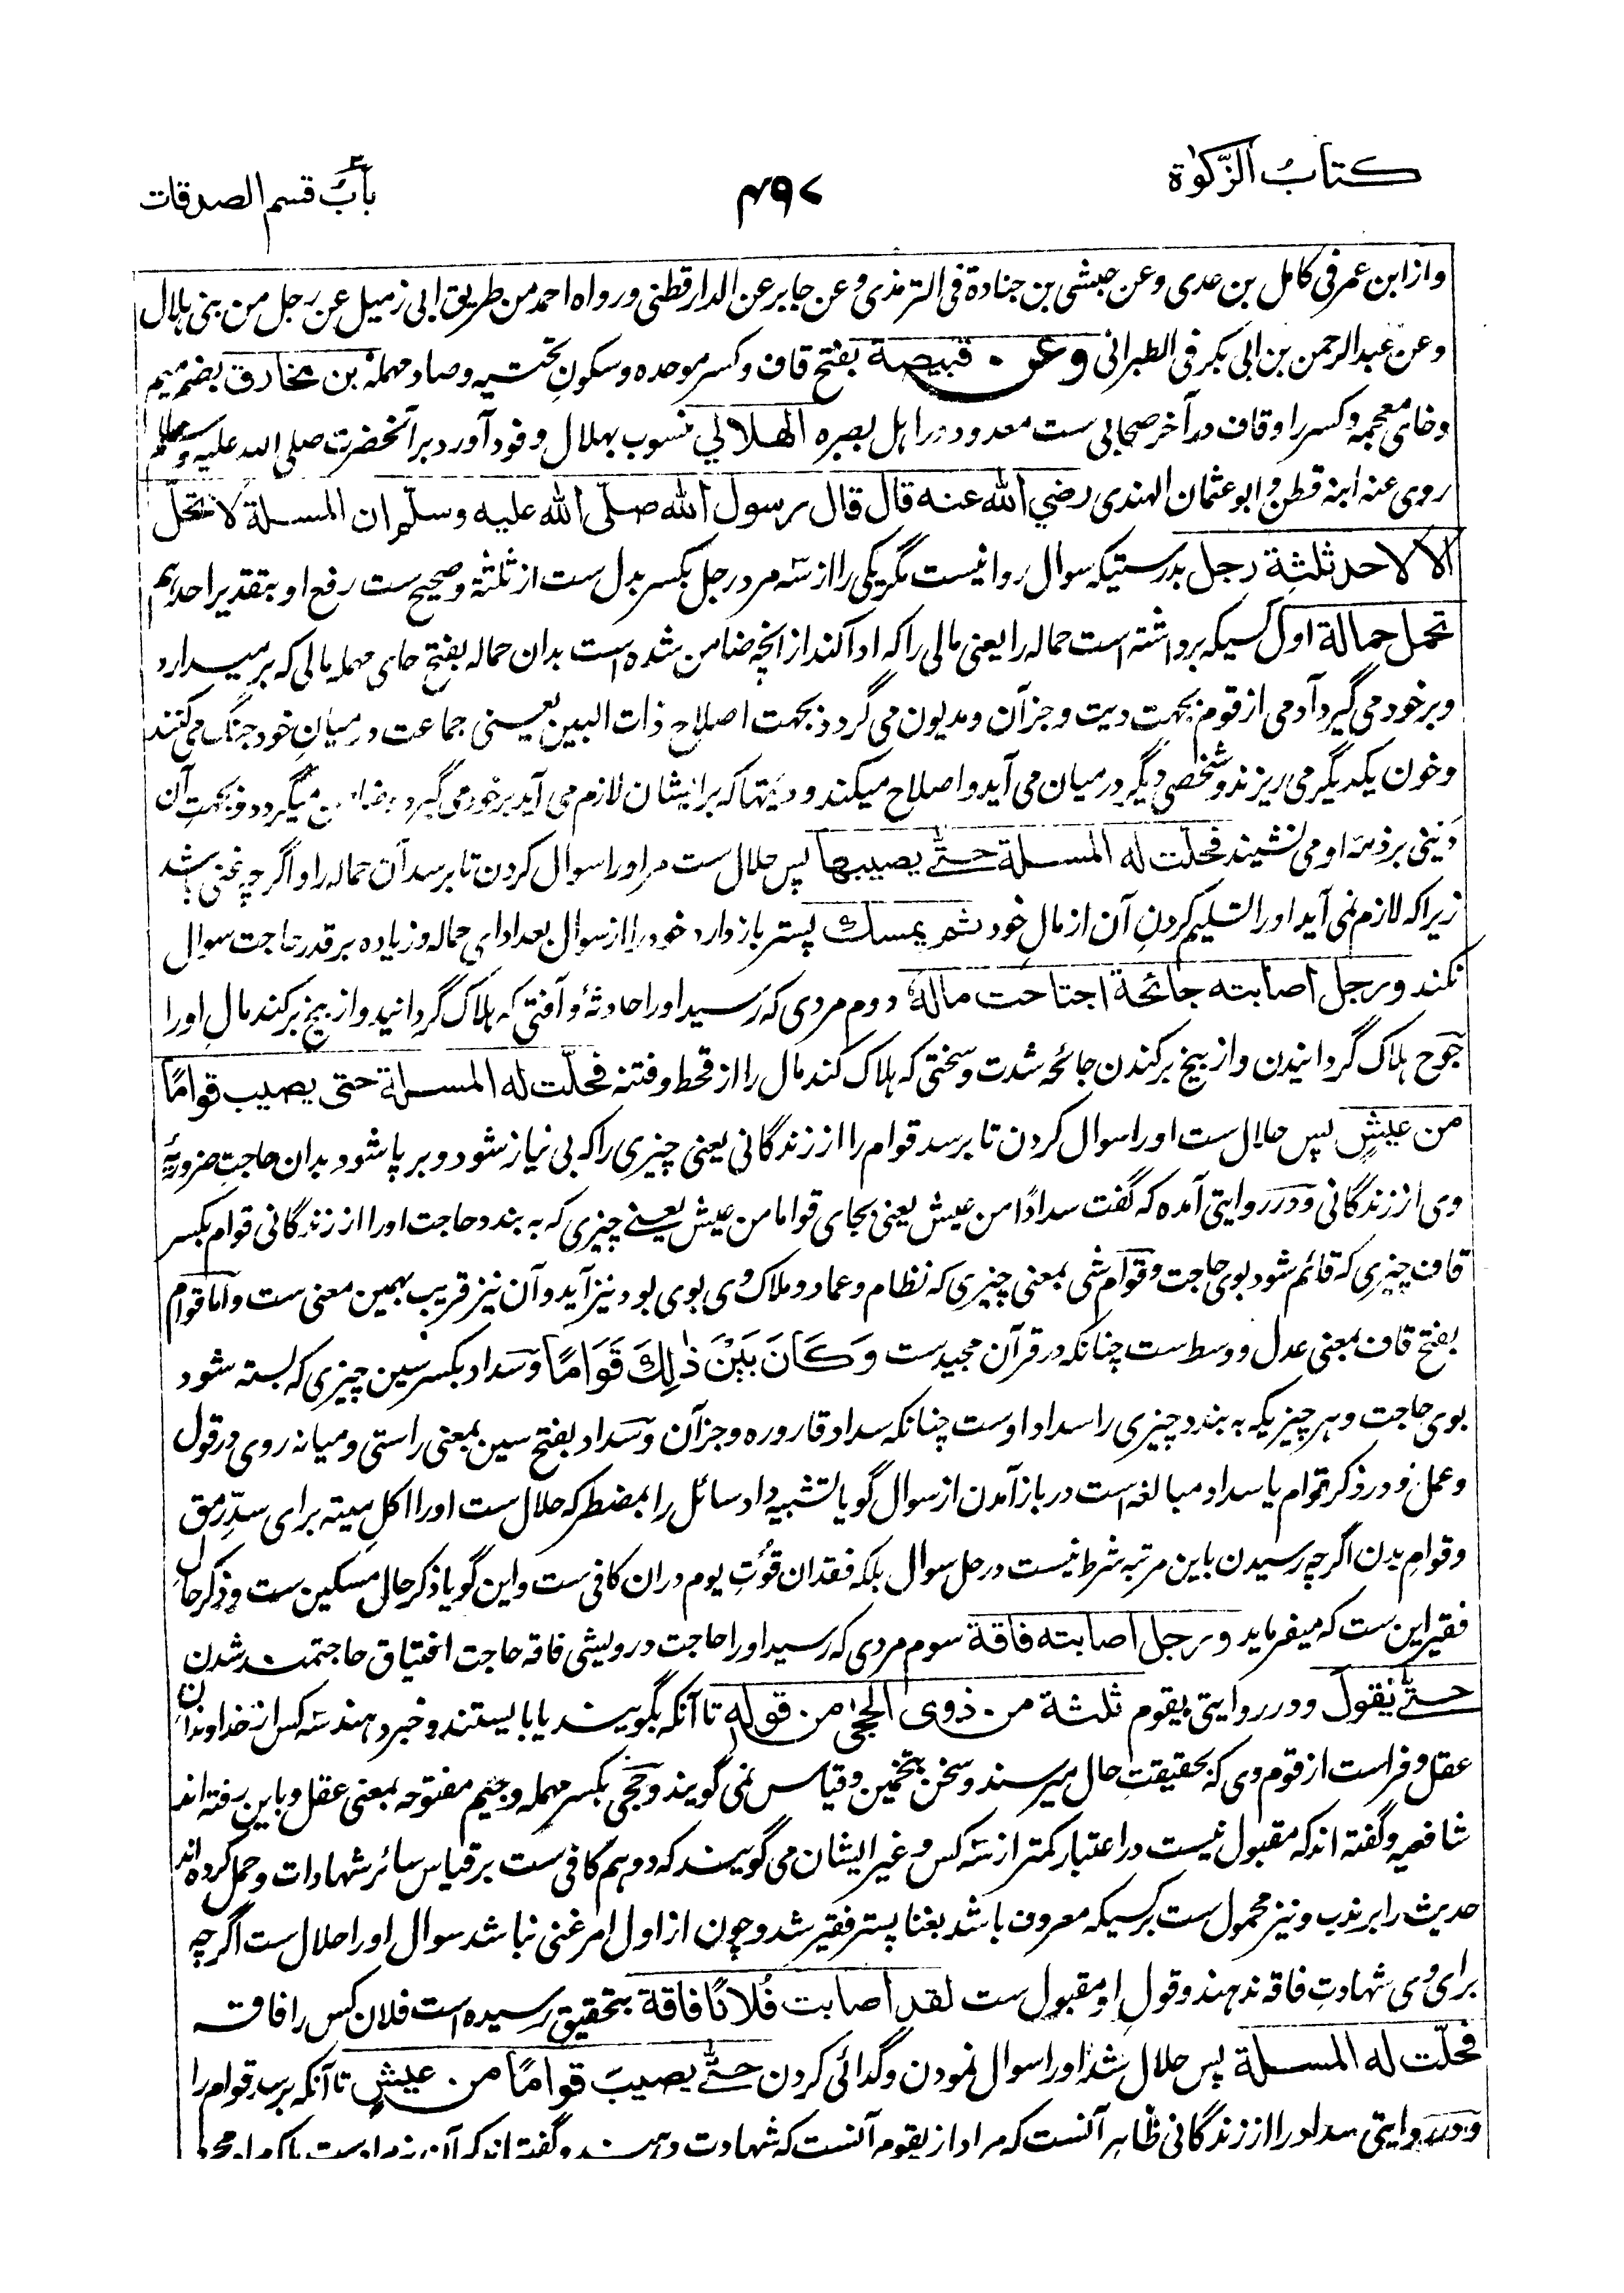 كتابُ الزّكوٰة
۴۹۷
بابُ قسم الصدقات
واز ابن عمر فی کامل بن عدی وعن حبشی بن جنادة فی الترمذی وعن جابر عن الدارقطنی ورواه احمد من طریق ابی زمیل عن رجل من بنی ہلال
وعن عبدالرحمن بن ابی بکر فی الطبرانی وعن قبیصة بفتح قاف وکسر موحده وسکون تحتیه وصاد مہمله بن مخارق بضم میم
وخای معجمه وکسر را وقاف در آخر صحابی ست معدود در اہل بصره الهلالي منسوب بہلال وفود آورد بر آنحضرت صلی الله علیه وسلم
روی عنه ابنه قطن و ابو عثمان الہندی رضي الله عنه قال قال رسول الله صلّى الله عليه وسلّم ان المسـلة لا تحلّ
الا لاحد ثلثة رجل بدرستیکه سوال روا نیست مگر یکی را از سه مرد رجل بکسر بدل ست از ثلثة وصحیح ست رفع او بتقدیر احدہم
تحمل حمالة اول کسیکه برداشته است حماله را یعنی مالی را که ادا کند از انچه ضامن شده است بدان حماله بفتح حای مہمله مالی که برمیدارد
وبر خود می گیرد آدمی از قوم بجہت دیت وجز آن ومدیون می گردد بجہت اصلاح ذات البین یعنی جماعت در میان خود جنگ می کنند
وخون یکدیگر می ریزند و شخصی دیگر در میان می آید و اصلاح میکند و دیتها که بر ایشان لازم می آید بر خود می گیرد میگردد و بجہت آن
دینی بر ذمه او می نشیند فحلّت له المسـلة حتّٰى يصيبها پس حلال ست مر او را سوال کردن تا برسد آن حماله را و اگر چه غنی باشد
زیرا که لازم نمی آید او را تسلیم کردن آن از مال خود ثم يمسك پستر باز دارد خود را از سوال بعد ادای حماله و زیاده بر قدر حاجت سوال
نکند ورجل اصابته جائحة اجتاحت ماله دوم مردی که رسید او را حادثه و آفتی که ہلاک گردانید و از بیخ برکند مال او را
جوح ہلاک گردانیدن و از بیخ برکندن جائحه شدت و سختی که ہلاک کند مال را از قحط و فتنه فحلّت له المسـلة حتى يصيب قوامًا
من عيشٍ پس حلال ست او را سوال کردن تا برسد قوام را از زندگانی یعنی چیزی را که بی نیاز شود و بر پا شود بدان حاجت ضروریهٔ
وی از زندگانی و در روایتی آمده که گفت سدادًا من عیش یعنی بجای قواما من عیش یعنے چیزی که به بندد حاجت او را از زندگانی قوام بکسر
قاف چیزی که قائم شود بوی حاجت و قوام شی بمعنی چیزی که نظام و عماد و ملاک وی بوی بود نیز آید و آن نیز قریب بہمین معنی ست و اما قوام
بفتح قاف بمعنی عدل و وسط ست چنانکه در قرآن مجید ست وَكَانَ بَيْنَ ذٰلِكَ قَوَامًا و سداد بکسر سین چیزی که بسته شود
بوی حاجت و ہر چیزیکه به بندد چیزی را سداد اوست چنانکه سداد قاروره و جز آن و سداد بفتح سین بمعنی راستی و میانه روی در قول
و عمل و در ذکر قوام یا سداد مبالغه است در باز آمدن از سوال گویا تشبیه داد سائل را بمضطر که حلال ست او را اکل میته برای سدِّ رمق
و قوام بدن اگر چه رسیدن باین مرتبه شرط نیست در حل سوال بلکه فقدان قوتِ یوم در ان کافی ست و این گویا ذکر حال مسکین ست و ذکر حال
فقیر این ست که میفرماید ورجل اصابته فاقة سوم مردی که رسید او را حاجت درویشی فاقه حاجت افتیاق حاجتمند شدن
حتّٰى يقول و در روایتی یقوم ثلثة من ذوى الحجى من قومه تا آنکه بگویند یا بایستند و خبر دہند سه کس از خداوندان
عقل و فراست از قوم وی که بحقیقت حال میرسند و سخن بتخمین و قیاس نمی گویند و حجی بکسر مہمله و جیم مفتوحه بمعنی عقل و باین رفته اند
شافعیه و گفته اند که مقبول نیست در اعتبار کمتر از سه کس و غیر ایشان می گویند که دو ہم کافی ست بر قیاس سائر شہادات و حمل کرده اند
حدیث را بر ندب و نیز محمول ست بر کسیکه معروف باشد بغنا پستر فقیر شد و چون از اول امر غنی نباشد سوال او را حلال ست اگر چه
برای وی شہادتِ فاقه ندہند و قولِ او مقبول ست لقد اصابت فُلانًا فاقة بتحقیق رسیده است فلان کس را فاقه
فحلّت له المسـلة پس حلال شد او را سوال نمودن و گدائی کردن حتّٰى يصيبَ قوامًا من عيشٍ تا آنکه برسد قوام را
و در روایتی سداد را از زندگانی ظاہر آنست که مراد از یقوم آنست که شہادت دہند و گفته اند که آن